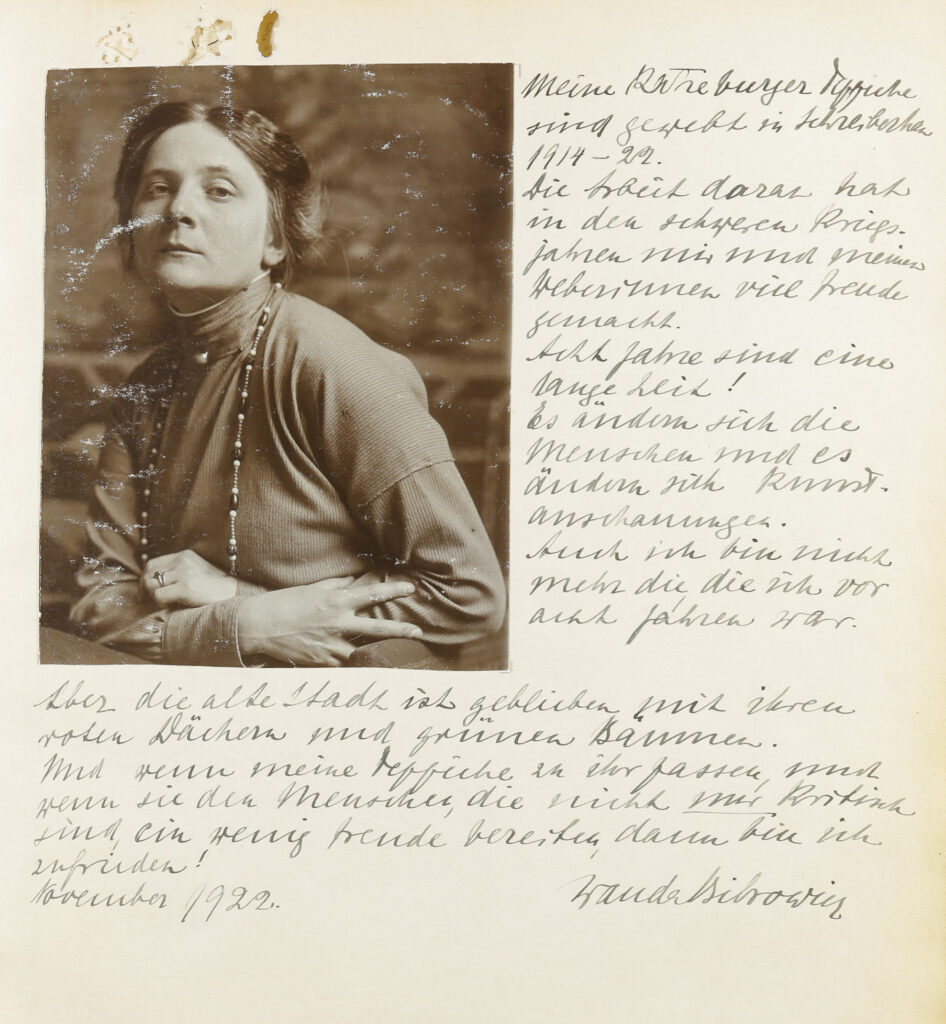 Meine Ratzeburger Teppiche
sind gewebt in Schreiberhau
1914 – 22.
Die Arbeit daran hat
in den schweren Kriegs-
jahren mir und meinen
Weberinnen viel Freude
gemacht.
Acht Jahre sind eine
lange Zeit!
Es ändern sich die
Menschen und es
ändern sich Kunst-
anschauungen.
Auch ich bin nicht
mehr die, die ich vor
acht Jahren war.
Aber die alte Stadt ist geblieben mit ihren
roten Dächern und grünen Bäumen.
Und wenn meine Teppiche zu ihr passen, und
wenn sie den Menschen, die nicht nur Kritisch
sind, ein wenig Freude bereiten, dann bin ich
zufrieden!
November 1922.
Wanda Bibrowicz